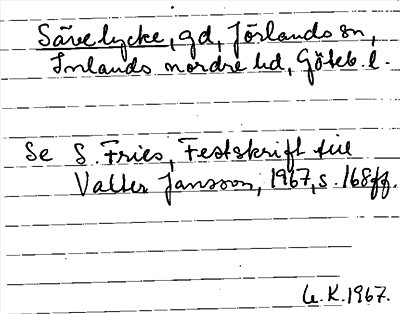 Sävelycke, gd, Jörlands sn,
Inlands nordre hd, Göteb. l.
Se S. Fries, Festskrift till
Valter Jansson, 1967, s. 168ff.
K. 1967.